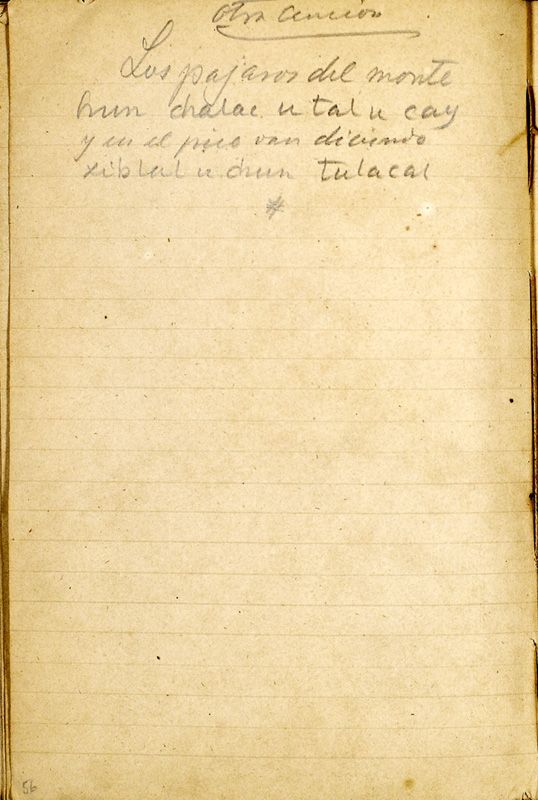 Otra cancion
Los pajaros del monte
hun chalac u tal u cay
y en el pico van diciendo
xiblal u chun tulacal
#
56